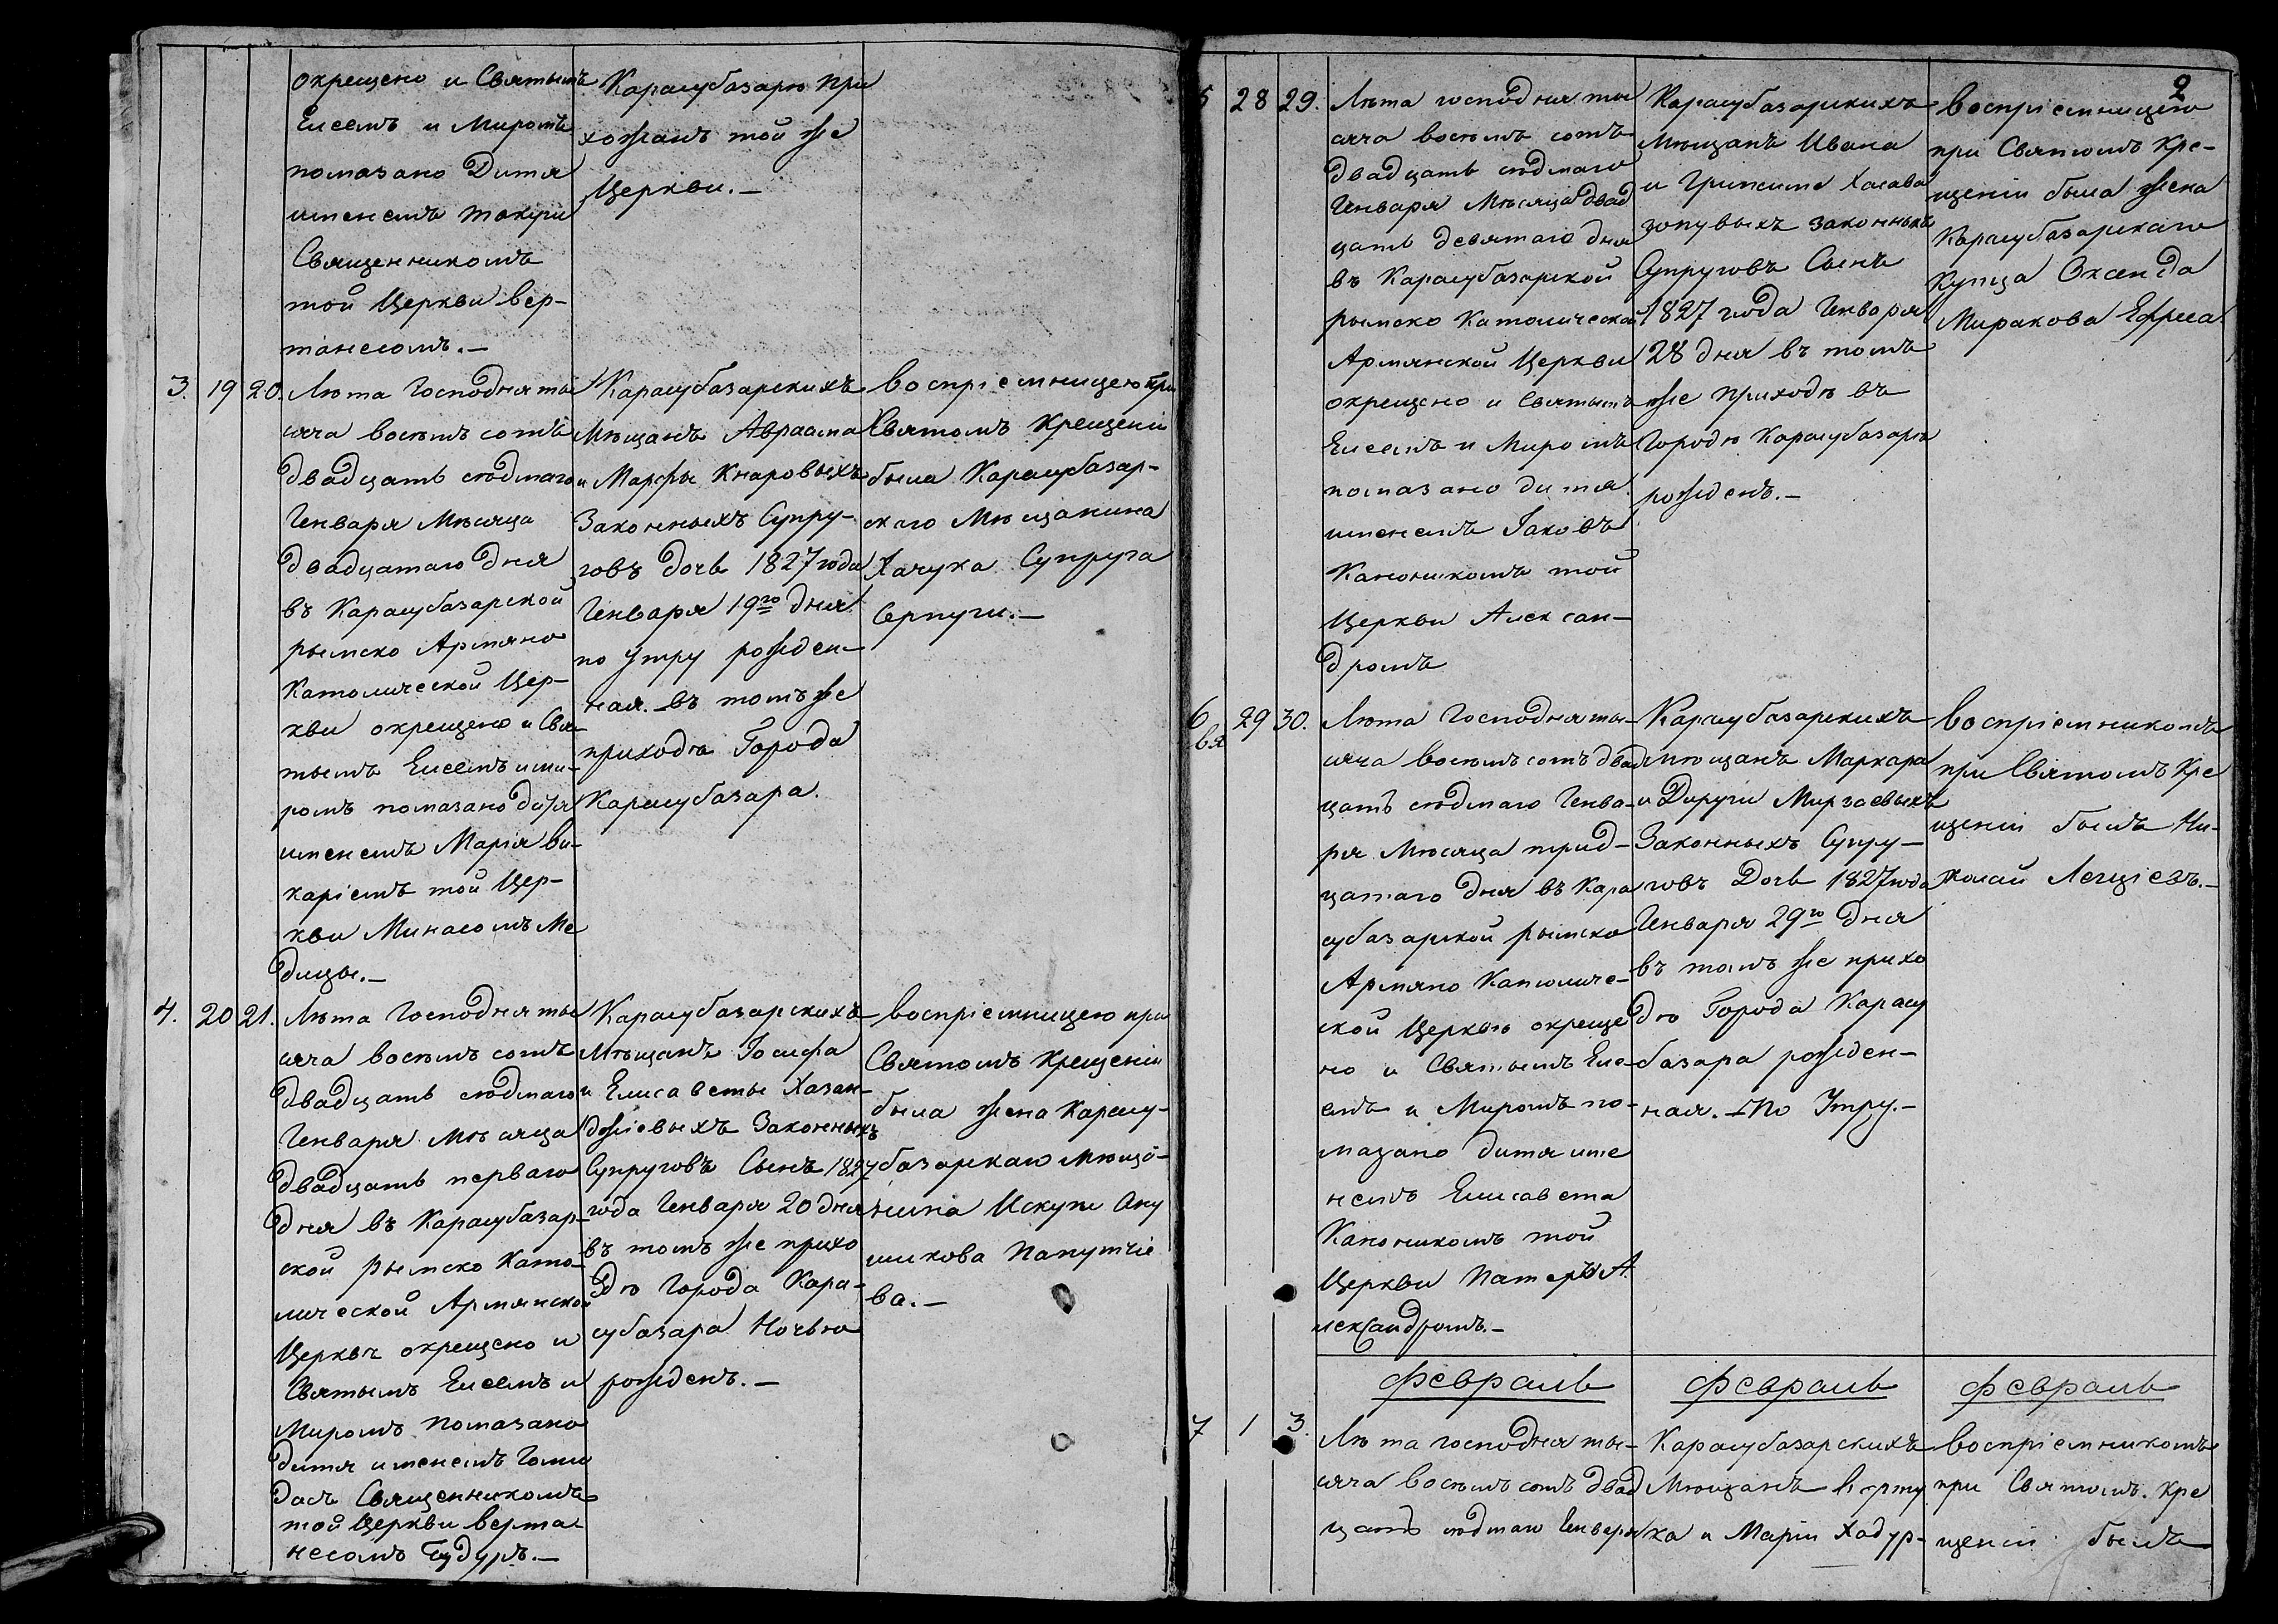 окрещено и Святымъ
Елеемъ и Миромъ
помазано Дитя
именемъ Такуги
Священникомъ
той Церкви Вер-
танесомъ.—
Карасубазарѣ при
хожанъ той же
Церкви.—
3. 19 20.
Лѣта Господня ты
сяча восемь сотъ
двадцать седмаго
Генваря Мѣсяца
двадцатаго дня
въ Карасубазарской
рымско Армяно
Католической Цер-
кви окрещено и Свя-
тымъ Елеемъ и ми-
ромъ помазано дитя
именемъ Марія ви-
каріемъ той Цер-
кви Минасомъ Ме
дицы.—
Карасубазарскихъ
Мѣщанъ Авраама
и Марфы Кнаровыхъ
Законныхъ Супру-
говъ дочь 1827 года
Генваря 19го дня
по утру рожден-
ная. въ томъ же
приходѣ Города
Карасубазара.
Воспріемницею при
Святомъ Крещеніи
была Карасубазар-
скаго Мѣщанина
Хачука Супруга
Серпуги.—
4. 20 21.
Лѣта Господня ты
сяча восемь сотъ
двадцать седмаго
Генваря мѣсяца
двадцать перваго
дня въ Карасубазар-
ской рымско Като-
лической Армянской
Церкви окрещено и
Святымъ Елеемъ и
Миромъ помазано
дитя именемъ Гоми
дасъ Священникомъ
той Церкви Верта-
несомъ
Карасубазарскихъ
Мѣщанъ Іосифа
и Елисаветы Хазан-
джіевыхъ Законныхъ
Супруговъ Сынъ 1827
года Генваря 20 дня
въ томъ же прихо
дѣ города Кара-
субазара Ночью
рожденъ.—
воспріемницею при
Святомъ Крещеніи
была жена Карасу-
базарскаго мѣща-
нина Искуги Аку
шикова Папутчіе
ва.—
2
5 28 29.
Лѣта господня ты
сяча восемь сотъ
двадцать седмаго
Генваря Мѣсяца двад
цать девятаго дня
въ Карасубазарской
рымско Католической
Армянской Церкви
окрещено и Святымъ
Елеемъ и Миромъ
помазано дитя
именемъ Іаковъ
Каноникомъ той
Церкви Алексан-
дромъ
Карасубазарскихъ
Мѣщанъ Ивана
и Грипсиме Халава
зопувыхъ законныхъ
Супруговъ Сынъ
1827 года Генваря
28 дня въ томъ
же приходѣ въ
Городѣ Карасубазарѣ
рожденъ.—
воспріемницею
при Святомъ Кре-
щеніи была жена
Карасубазарскаго
Купца Оксенда
Миракова Ефреса.
6 29 30.
вя
Лѣта Господня ты-
сяча восемь сотъ двад
цать седмаго Генва-
ря Мѣсяца трид-
цатаго дня въ Кара
субазарской рымско
Армяно Католиче-
ской Церквѣ окреще
но и Святымъ Еле-
емъ и Миромъ по-
мазано дитя име
немъ Елисавета
Каноникомъ той
Церкви Патеръ А
лександромъ.—
Карасубазарскихъ
мѣщанъ Маркара
и Дируги Мирзаевыхъ
Законныхъ Супру-
говъ Дочь 1827 года
Генваря 29го дня
въ томъ же прихо
дѣ Города Карасу
базара рожден-
ная.— По Утру.—
Воспріемникомъ
при Святомъ Кре
щеніи былъ Ни-
колай Легціевъ.—
февраль
февраль
февраль
7 1 3.
Лѣта господня ты-
сяча восемь сотъ двад
цать седмаго Генваря
Карасубазарскихъ
Мѣщанъ Верту
ка и Маріи Хадур-
Воспріемникомъ
при Святомъ Кре
щеніи былъ